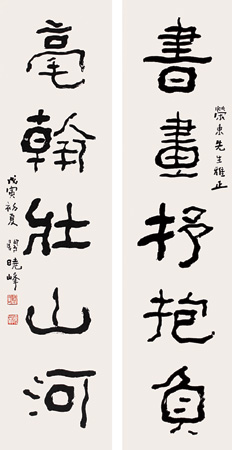 榮東先生雅正
書畫抒抱負
毫翰壯山河
戊寅初夏 曉峰